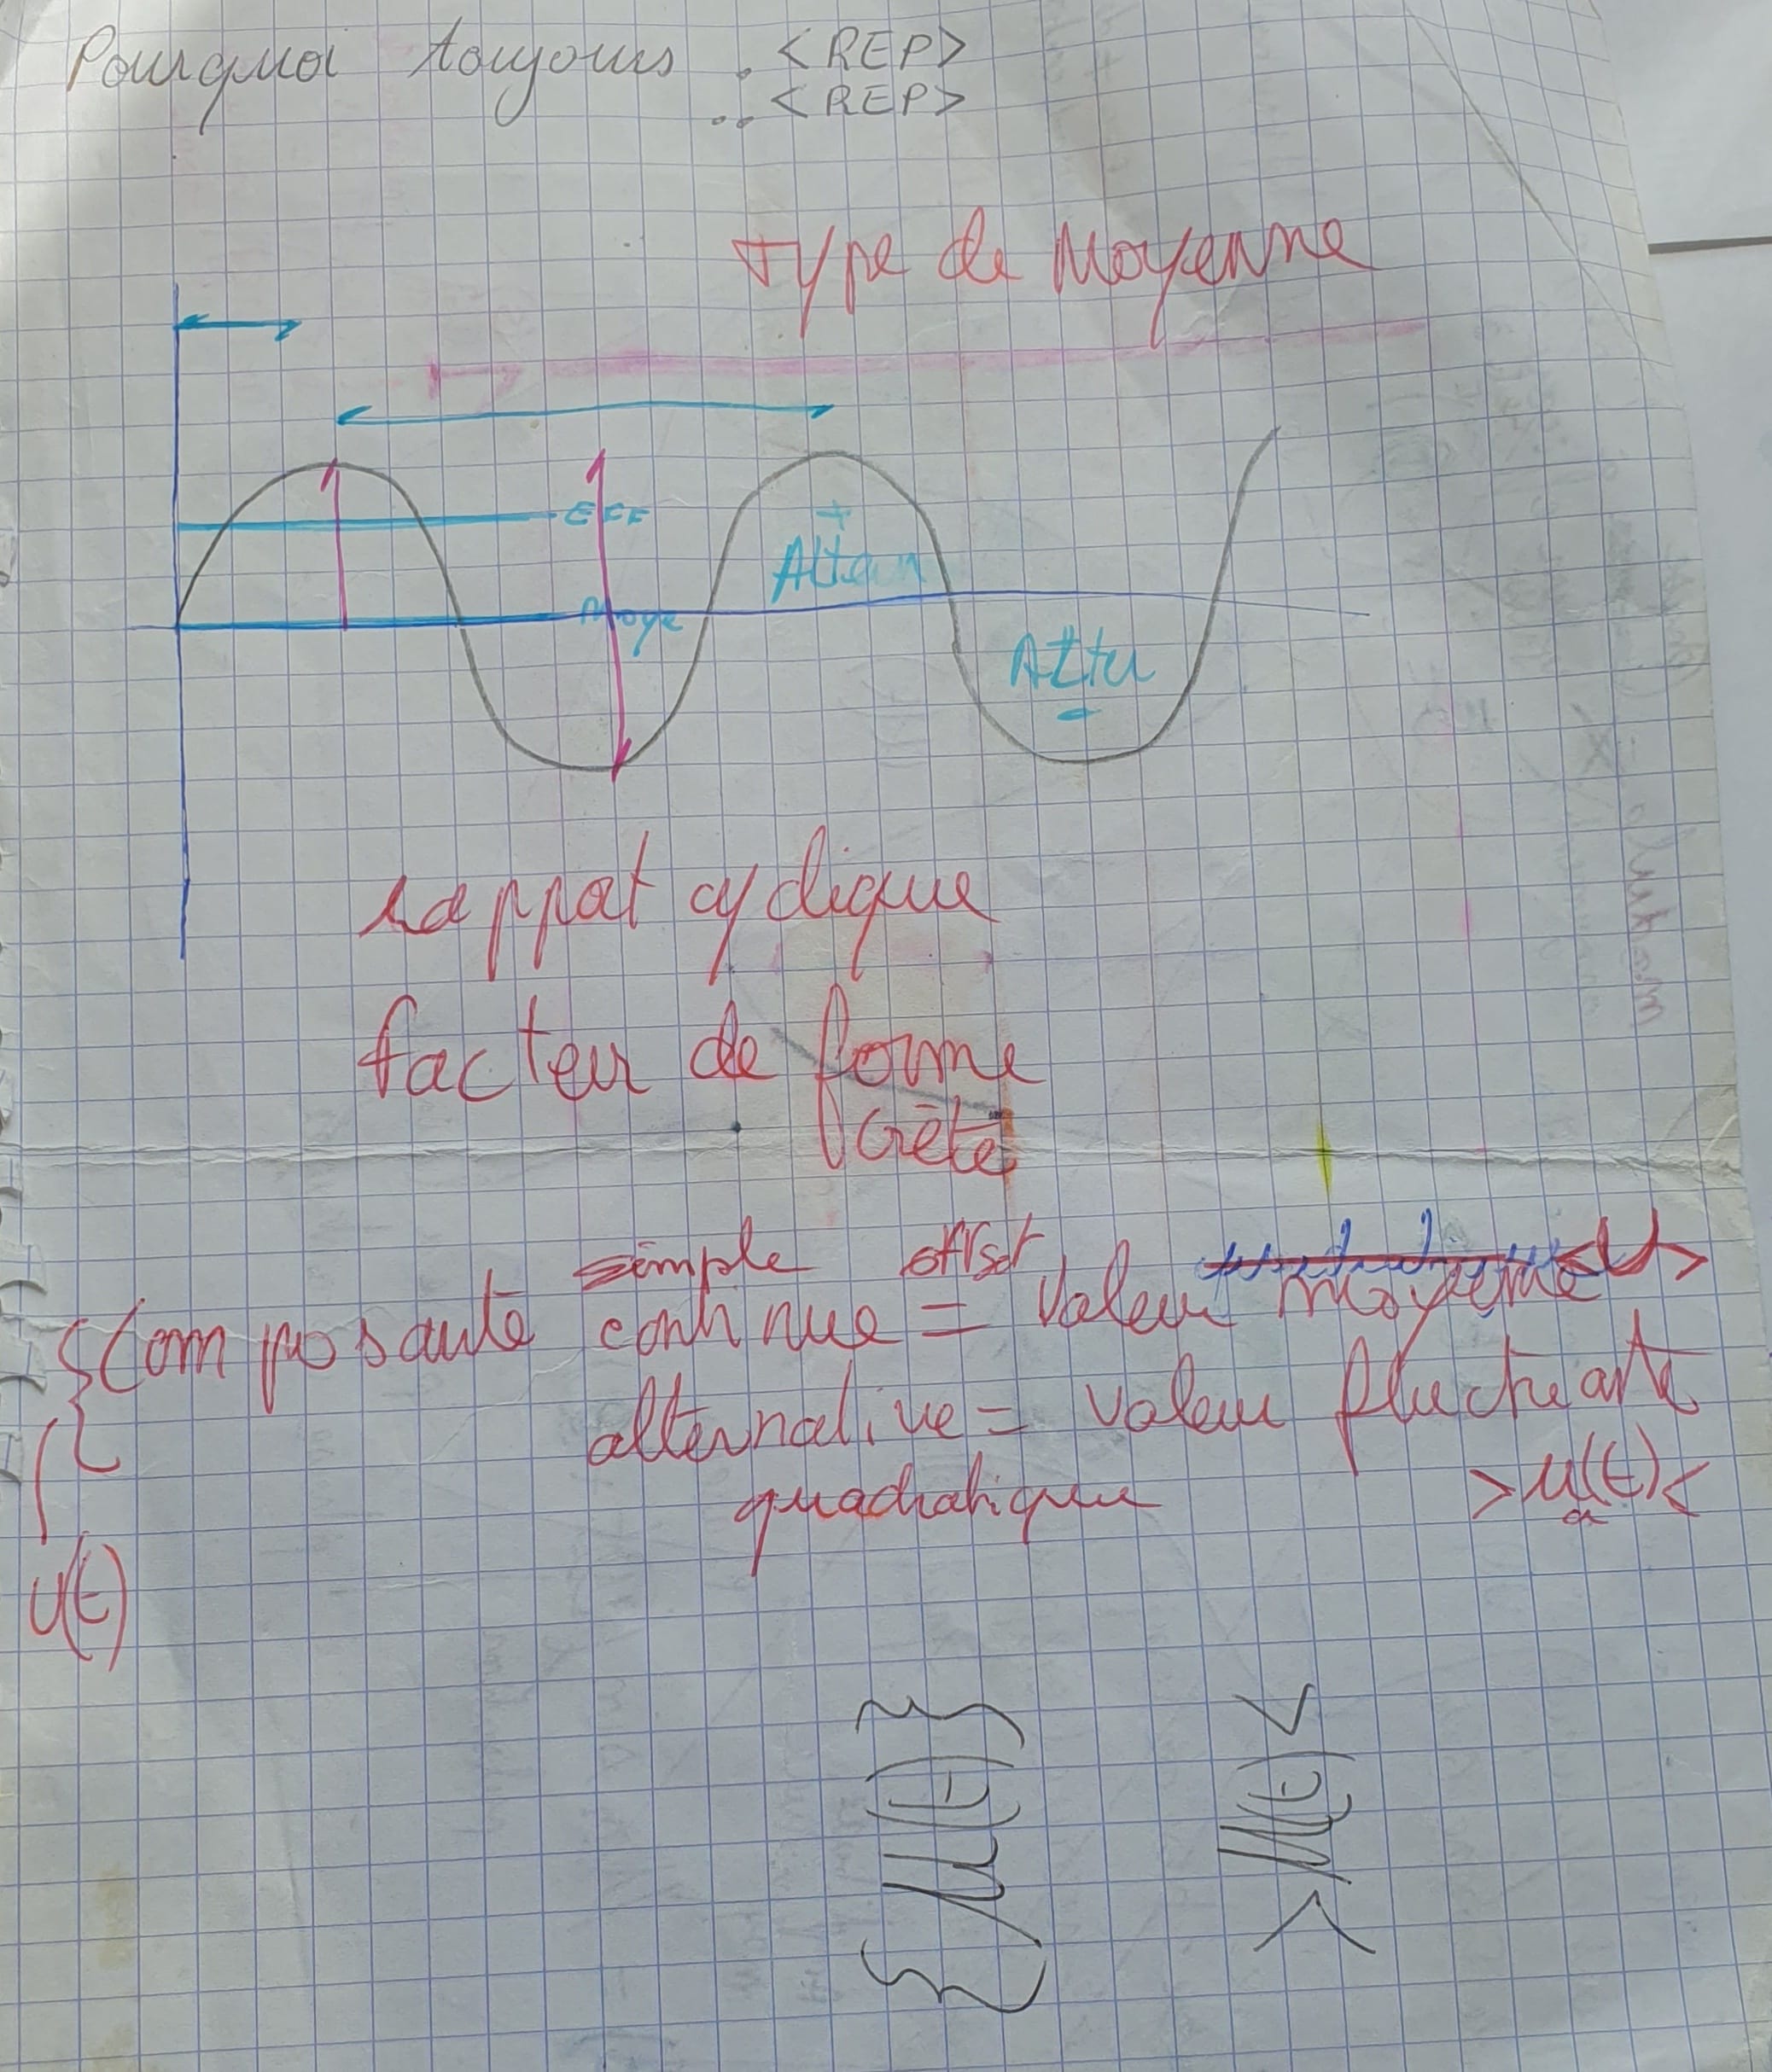 Pourquoi toujours . <REP>
.. <REP>
Type de Moyenne
EFF
+
Altern
Moye
Alter
-
rappot cyclique
facteur de forme
crête
simple offset
{Composante continue = Valeur moyenne <U>
alternative = valeur fluctuante
quadratique >u(t)<
U(t)
{u(t)}
>u(t)<